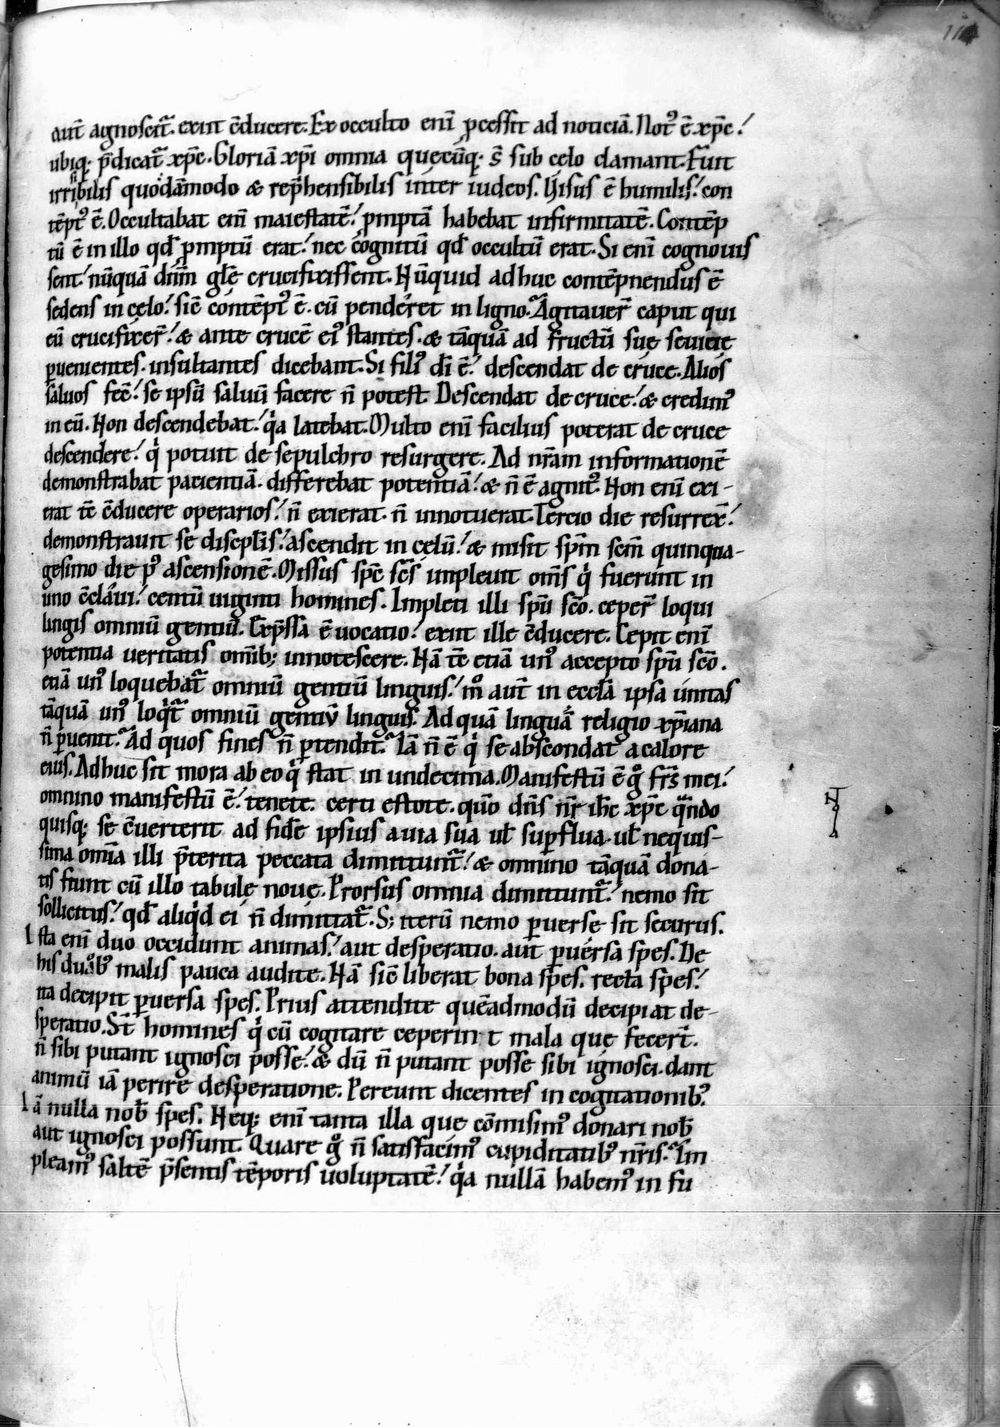 114
aut̄ agnoscit᷑. exiit c̄ducere. Ex occulto enī ꝓcessit ad noticiā. Notꝰ ē xp̄c.ʹ
ubiq; p̄dicat᷑ xp̄c. Gloriā xp̄i omnia quęcūq; s̄ sub celo clamant. Fuit
irribilis quodāmodo & rep̄hensibilis inter iudeos. Uisus ē humilis.ʹ con
tēptꝰ ē. Occultabat enī maiestatē.ʹ pmptā habebat infirmitatē. Contēp
tū ē in illo qd̄ pmptū erat.ʹ nec cognitū qd̄ occultū erat. Si enī cognouis
sent.ʹ nūquā dn̄m glę̄ crucifixissent. Nūquid adhuc contēpnendus ē
sedens in cęlo.ʹ sic̄ contēptꝰ ē. cū penderet in ligno. Agitauer̄ caput qui
eū crucifixer̄.ʹ & ante crucē eiꝰ stantes. & tāquā ad fructū suę seuicię
ꝑuenientes. insultantes dicebant. Si filiꝰ dī ē.ʹ descendat de cruce. Alios
saluos fec̄.ʹ se ipsū saluū facere n̄ potest Descendat de cruce.ʹ & credimꝰ
in eū. Non descendebat.ʹ qͥa latebat. Multo enī facilius poterat de cruce
descendere.ʹ qͥ potuit de sepulchro resurgere. Ad nr̄am informationē
demonstrabat pacientiā. differebat potentiā.ʹ & n̄ ē agnitꝰ. Non enī exi-
erat tc̄ c̄ducere operarios.ʹ n̄ exierat. n̄ innotuerat. Tercio die resurrex̄.ʹ
demonstrauit se discipłis.ʹ ascendit in cęlū.ʹ & misit sp̄m sc̄m quinqua-
gesimo die pꝰ ascensionē. Missus sp̄c sc̄s impleuit om̄s qͥ fuerunt in
uno c̄claui.ʹ centū uiginti homines. Impleti illi sp̄u sc̄o. ceper̄ loqui
linguis omniū gentiū. Exp̄ssa ē uocatio.ʹ exiit ille c̄ducere. Cepit enī
potentia ueritatis om̄ib; innotescere. Nā tc̄ etiā unꝰ accepto sp̄u sc̄o.
etiā unꝰ loquebat᷑ omniū gentiū linguis.ʹ mͦ aut̄ in eccłā ipsa unitas
tāquā unꝰ loqͥt᷑ omniū gentiū linguis. Ad quā linguā religio xp̄iana
n̄ ꝑuenit. Ad quos fines n̄ ptendit. Iā n̄ ē qͥ se abscondat a calore
eius. Adhuc sit mora ab eo qͥ stat in undecima. Manifestū ē gͦ frs̄ mei.ʹ
omnino manifestū ē.ʹ tenete. certi estote. qūo dn̄s nr̄ ihc̄ xp̄c qͣndo
quisq; se c̄uerterit ad fidē ipsius a uia sua uł supflua. uł nequis-
sima omīa illi p̄terita peccata dimittunt᷑.ʹ & omnino tāquā dona-
tis fiunt cū illo tabule nouę. Prorsus omnia dimittunt᷑.ʹ nemo sit
sollicitus.ʹ qd̄ aliqͥd ei n̄ dimittat᷑. S; iterū nemo ꝑuerse sit securus.
Ista enī duo occidunt animas.ʹ aut desperatio. aut ꝑuersa spes. De
his duobꝰ malis pauca audite. Nā sic̄ liberat bona spes. recta spes.ʹ
ita decipit ꝑuersa spes. Prius attendite quēadmodū decipiat de-
speratio. St̄ homines qͥ cū cogitare ceperint mala que fecer̄t.
n̄ sibi putant ignosci posse.ʹ & dū n̄ putant posse sibi ignosci. dant
animū iā perire desperatione. Pereunt dicentes in cogitationibꝰ.
Iā nulla nob̄ spes. Neq; enī tanta illa que cōmisimꝰ donari nob̄
aut ignosci possunt. Quare gͦ n̄ satisfacimꝰ cupiditatibꝰ nr̄is. Im
pleamꝰ saltē p̄sentis tēporis uoluptatē.ʹ qͥa nullā habemꝰ in fu